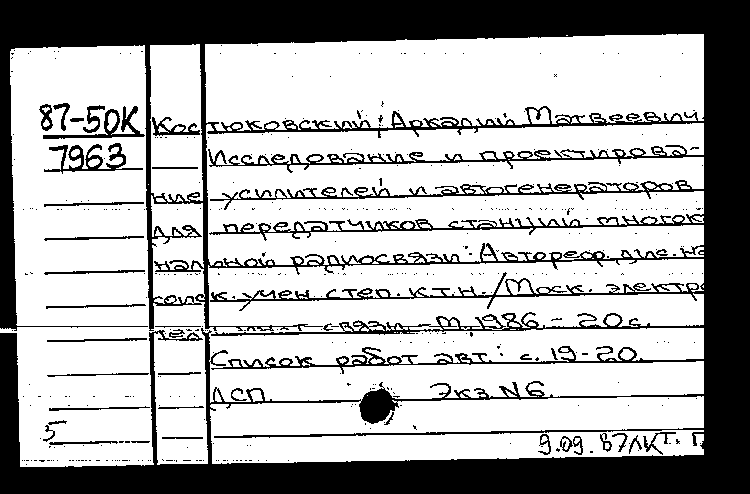 87-50К Костюковский, Аркадий Матвеевич.
7963 Исследование и проектирова-
ние усилителей и автогенераторов
для передатчиков станций многок
нальной радиосвязи: Автореф. дис. на
соиск. учен. степ. к.т.н./Моск. электро
техн. ин-т связи. - М., 1986. - 20 с.
Список работ авт.: с. 19-20.
ДСП. Экз N6.
5
9.09.87 ЛК Т.